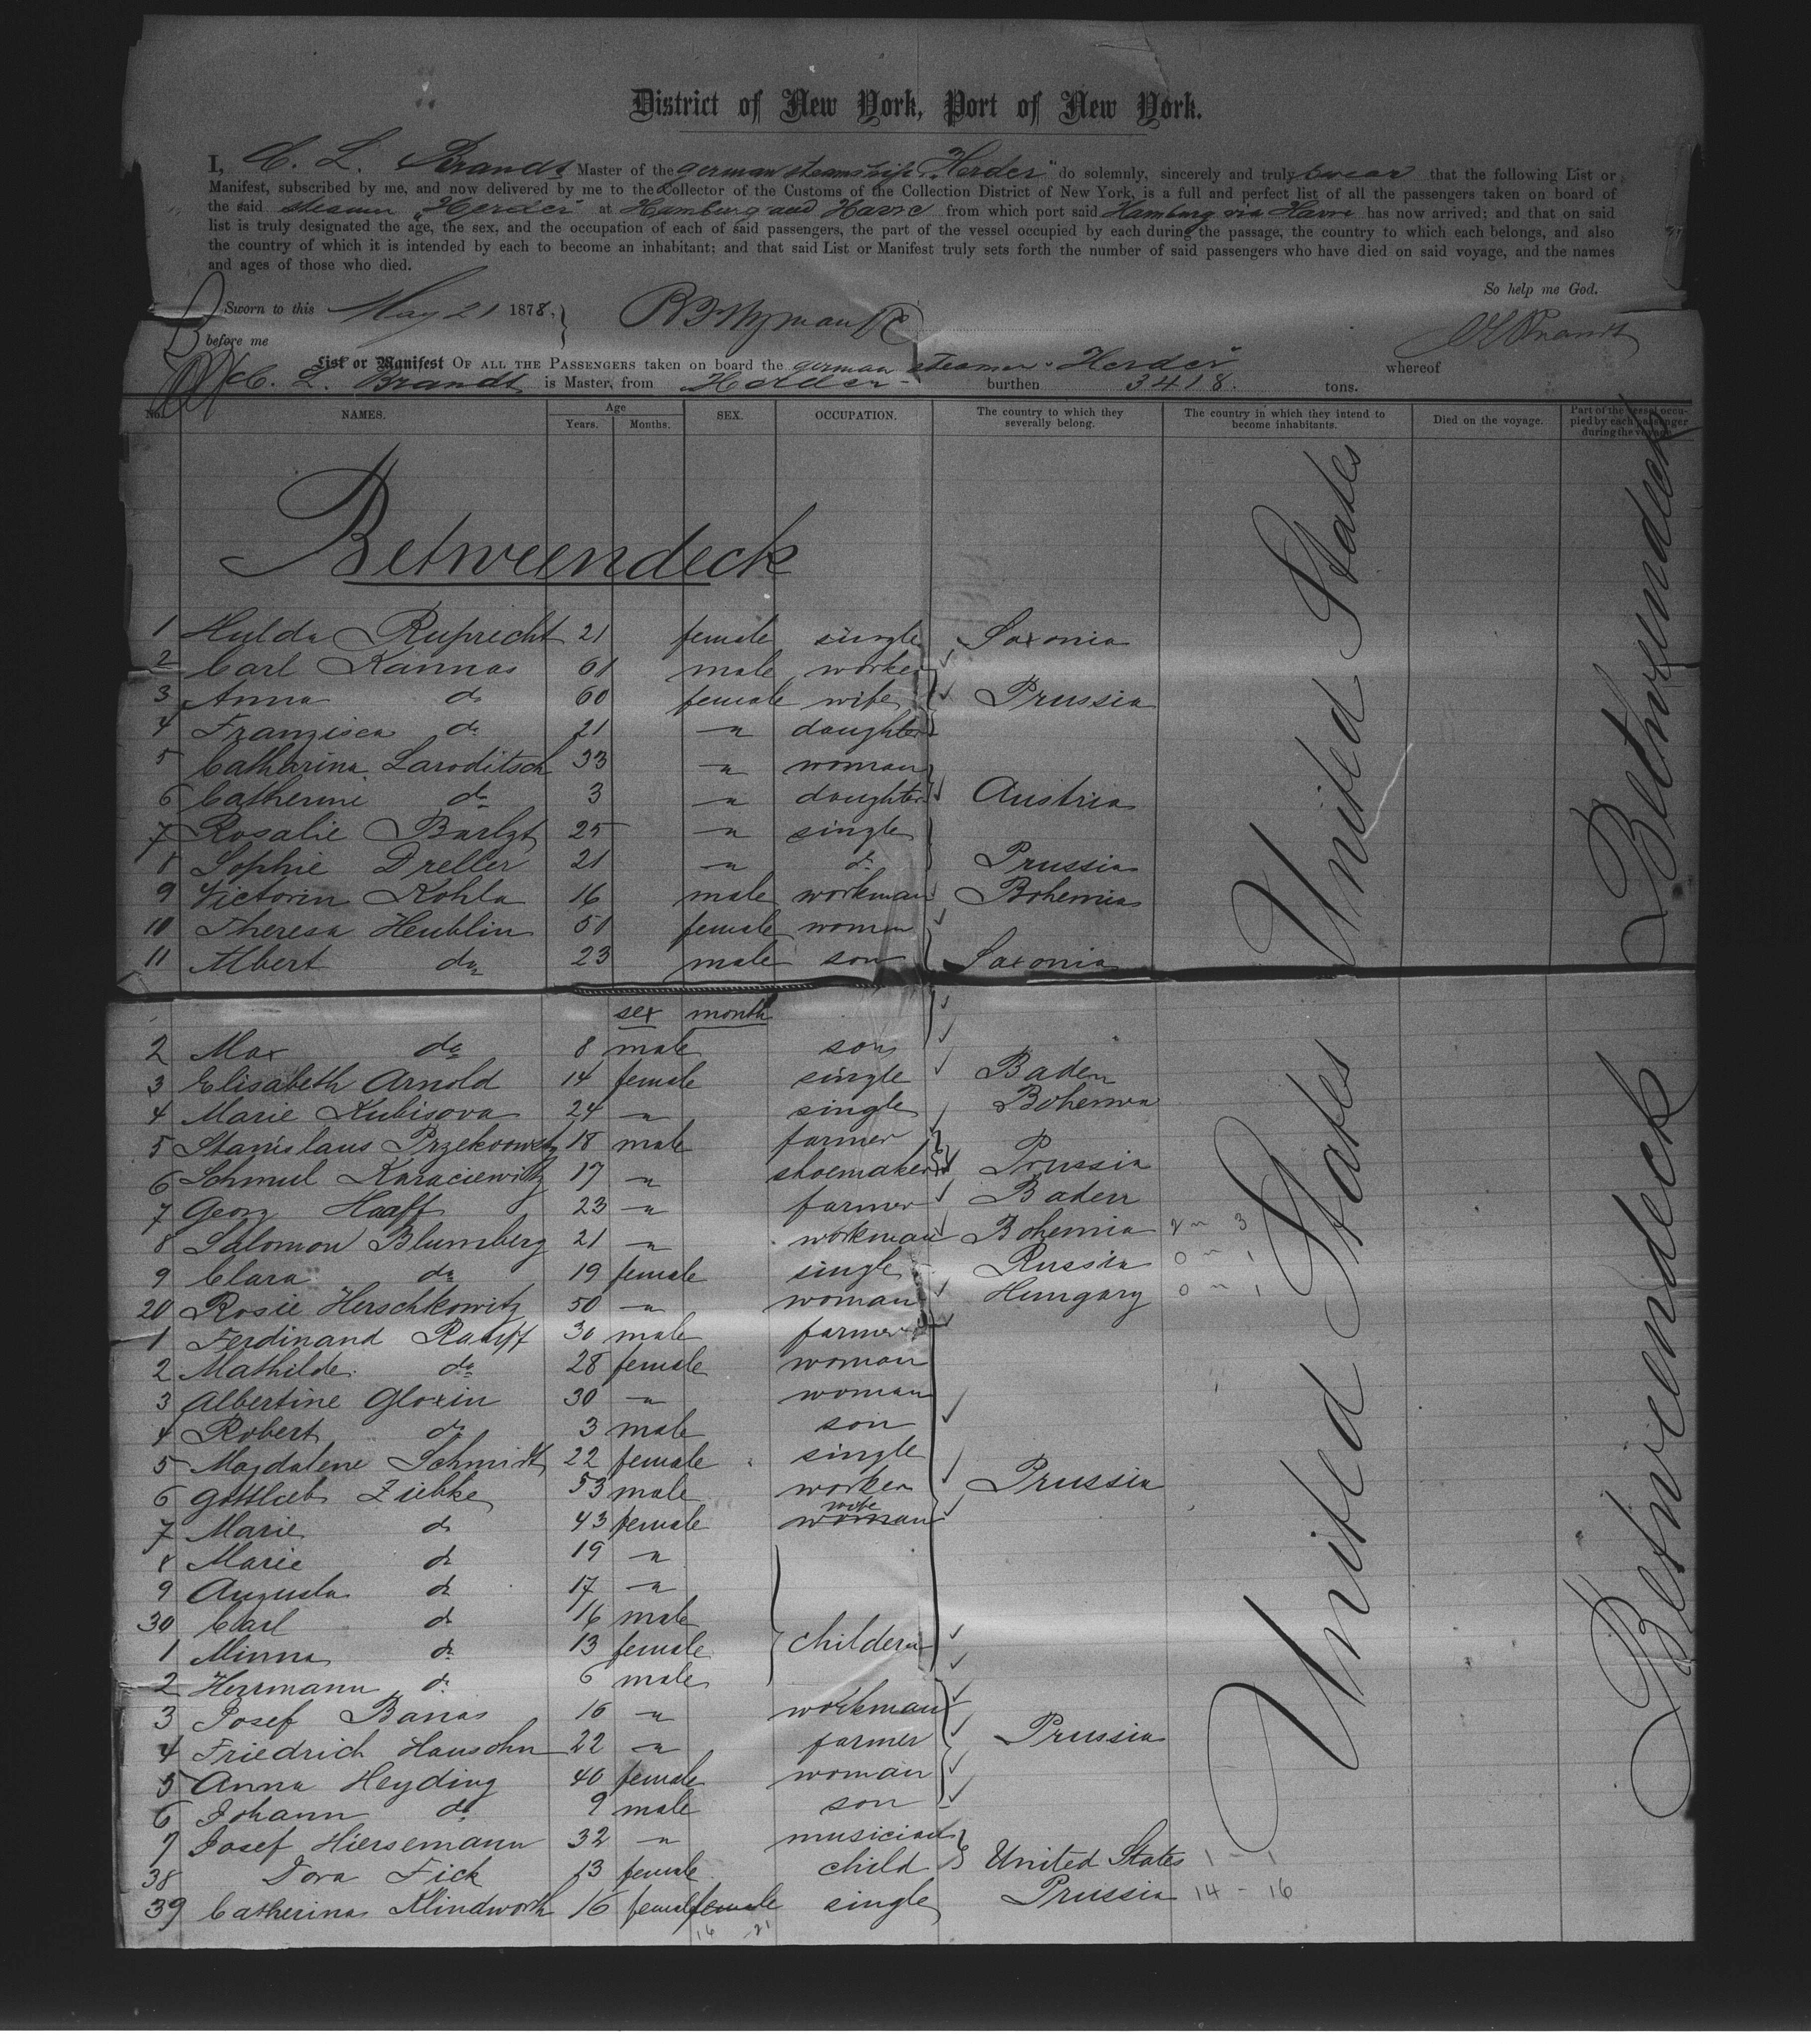 District of New York, Port of New York.
I, C. L. Brandt Master of the german steamship "Herder" do solemnly, sincerely and truly swear that the following List or
Manifest, subscribed by me, and now delivered by me to the Collector of the Customs of the Collection District of New York, is a full and perfect list of all the passengers taken on board of
the said steamer "Herder" at Hamburg and Havre from which port said Hamburg via Havre has now arrived; and that on said
list is truly designated the age, the sex, and the occupation of each of said passengers, the part of the vessel occupied by each during the passage, the country to which each belongs, and also
the country of which it is intended by each to become an inhabitant; and that said List or Manifest truly sets forth the number of said passengers who have died on said voyage, and the names
and ages of those who died.
So help me God.
Sworn to this May 21 1878,
before me
List or Manifest OF ALL THE PASSENGERS taken on board the german steamer Herder whereof
C. L. Brandt is Master, from burthen 3418. tons.
No. NAMES. Age Years. Months. SEX. OCCUPATION. The country to which they severally belong. The country in which they intend to become inhabitants. Died on the voyage. Part of the vessel occupied by each passenger during the voyage
Betweendeck
United States
Betweendeck
1 Hulda Ruprecht 21 female single Saxonia
2 Carl Kannas 61 male worker
3 Anna do 60 female wife Prussia
4 Franzisca do 21 " daughter
5 Catharina Laroditsch 33 " woman
6 Catherine do 3 " daughter Austria
7 Rosalie 25 " single
8 Sophie Dreller 21 " do Prussia
9 Victorin Kohla 16 male workman Bohemia
10 Theresa Heublin 51 female woman
11 Albert do 23 male son Saxonia
sex month
2 Max do 8 male son
3 Elisabeth Arnold 14 female single Baden
4 Marie Kubisova 24 " single Bohemia
5 Stanislaus 18 male farmer
6 Schmul Karaciewitz 17 " shoemaker Prussia
7 Georg Haaff 23 " farmer Baden
8 Salomon Blumberg 21 " workman Bohemia 2 " 3
9 Clara do 19 female single Russia 0 " 1
20 Rosie Herschkowitz 50 " woman Hungary 0 " 1
1 Ferdinand Rauff 30 male farmer
2 Mathilde do 28 female woman
3 Albertine Gloxin 30 " woman
4 Robert do 3 male son
5 Magdalene Schmidt 22 female single
6 Gottlieb Ziebke 53 male worker Prussia
7 Marie do 43 female woman wife
8 Marie do 19 "
9 Augusta do 17 "
30 Carl do 16 male
1 Minna do 13 female childern
2 Herrmann do 6 male
3 Josef Banas 16 " workman
4 Friedrich Hansohn 22 " farmer Prussia
5 Anna Heyding 40 female woman
6 Johann do 9 male son
7 Josef Hiersemann 32 " musician
38 Dora Fick 13 female child United States 1 - 1
39 Catherina Klindworth 16 female female single Prussia 14 - 16
16 21
United States
Betweendeck